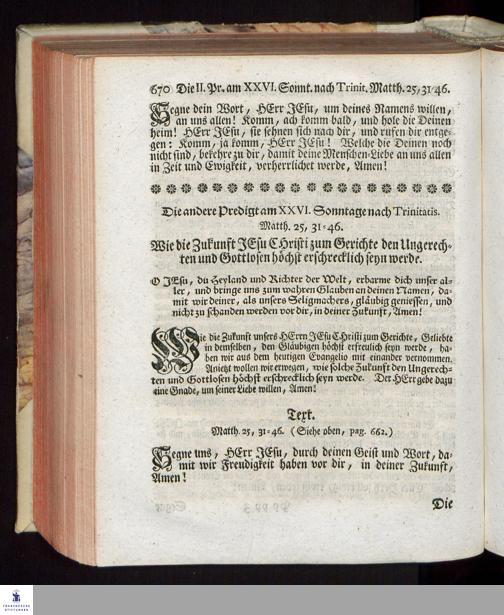 670 Die II. Pr. am XXVI. Sonnt. nach Trinit. Matth. 25, 31-46.
Segne dein Wort, HErr JEsu, um deines Namens willen,
an uns allen! Komm, ach komm bald, und hole die Deinen
heim! HErr JEsu, sie sehnen sich nach dir, und rufen dir entge-
gen: Komm, ja komm, HErr JEsu! Welche die Deinen noch
nicht sind, bekehre zu dir, damit deine Menschen-Liebe an uns allen
in Zeit und Ewigkeit, verherrlichet werde, Amen!
Die andere Predigt am XXVI. Sonntage nach Trinitatis.
Matth. 25, 31-46.
Wie die Zukunft JEsu CHristi zum Gerichte den Ungerech-
ten und Gottlosen höchst erschrecklich seyn werde.
O JEsu, du Heyland und Richter der Welt, erbarme dich unser al-
ler, und bringe uns zum wahren Glauben an deinen Namen, da-
mit wir deiner, als unsers Seligmachers, gläubig geniessen, und
nicht zu schanden werden vor dir, in deiner Zukunft, Amen!
Wie die Zukunft unsers HErrn JEsu CHristi zum Gerichte, Geliebte
in demselben, den Gläubigen höchst erfreulich seyn werde, ha-
ben wir aus dem heutigen Evangelio mit einander vernommen.
Anietzt wollen wir erwegen, wie solche Zukunft den Ungerech-
ten und Gottlosen höchst erschrecklich seyn werde. Der HErr gebe dazu
eine Gnade, um seiner Liebe willen, Amen!
Text.
Matth. 25, 31-46. (Siehe oben, pag. 662.)
Segne uns, HErr JEsu, durch deinen Geist und Wort, da-
mit wir Freudigkeit haben vor dir, in deiner Zukunft,
Amen!
Die
FRANCKESCHE
STIFTUNGEN